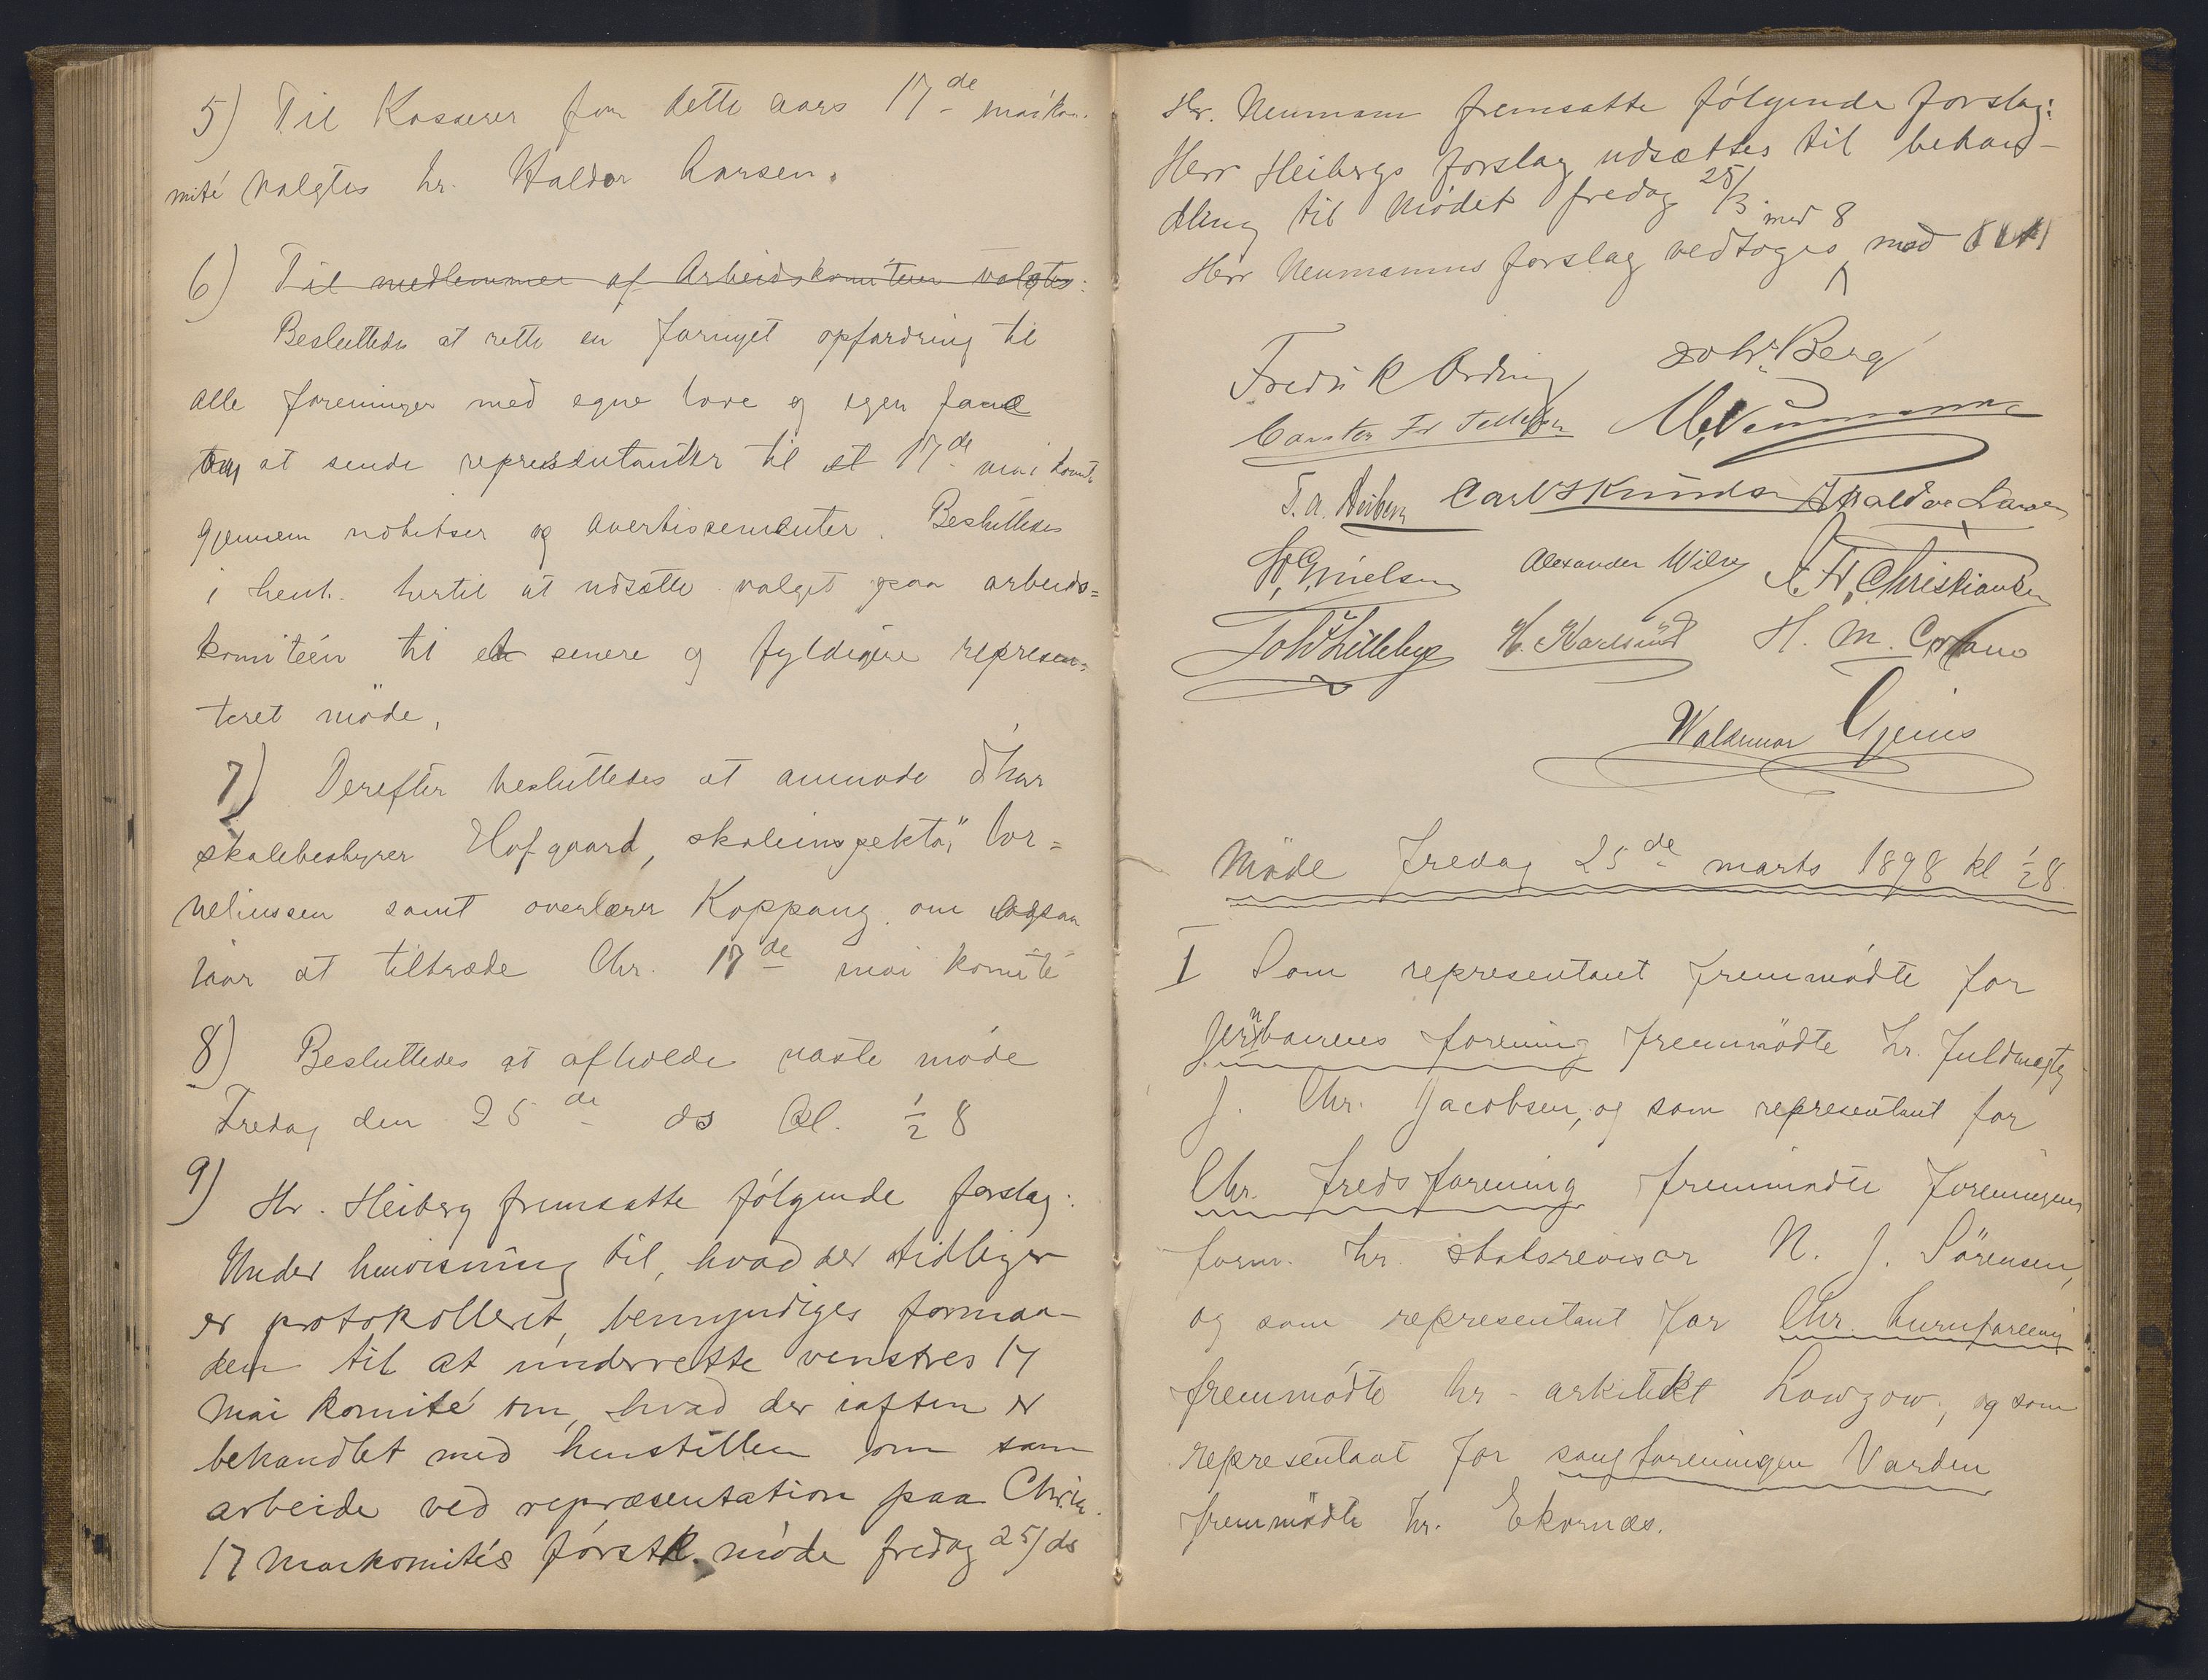 5) Til Kasserer for dette aars 17de maikom.
mité valgtes hr. Haldor Larsen.
6) Til medlemmer af Arbeidskomiteen valgtes:
Besluttedes at rette en fornyet opfordring til
alle foreninger med egne love og egen fane
om at sende repræsentanter til et 17de mai komité
gjennem notitser og avertissementer. Besluttedes
i henh. hertil at udsætte valget paa arbeids=
komitéen til et senere og fyldigere represen=
teret möde.
7) Derefter besluttedes at anmode d'hrr
skolebestyrer Hofgaard, skoleinspektör Cor=
neliussen samt overlærer Koppang om ogsaa
iaar at tiltræde Chr. 17de mai komité
8) Besluttedes at afholde næste møde
Fredag den 25de ds Kl. ½ 8
9) Hr. Heiberg fremsatte følgende forslag:
Under henvisning til, hvad der tidligere
er protokolleret, bemyndiges forman-
den til at underrette venstres 17
mai komité om, hvad der iaften er
behandlet med henstillen om sam
arbeide ved repræsentation paa Chria.
17 maikomités førstk. møde fredag 25/ ds
Hr. Neumann fremsatte følgende forslag:
Herr Heibergs forslag udsættes til behan-
dling til mödet fredag 25/3
med 8
Herr Neumanns forslag vedtoges mod
Fredrik Ording Johs. Berg
Carsten Fr Tellefsen M. Neumann
T. A. Heiberg Carl S Knudsen Haldor Larsen
H. G. Nielsen Alexander Wilse A. Fr. Christiansen
Joh. Lilleby H. Karlsrud H. M.
Waldemar Gjems
Möde Fredag 25de marts 1898 kl ½8.
I Som representant fremmødte for
Jernbanens forening fremmødte hr. Fuldmægtig
J. Chr. Jacobsen, og som representant for
Chr. fredsforening fremmødte foreningens
form. hr. statsrevisor N. J. Sörensen,
og som representant for Chr. turnforening
fremmødte hr. arkitekt Lowzow, og som
representant for sangforeningen Varden
fremmødte hr. Ekornæs.